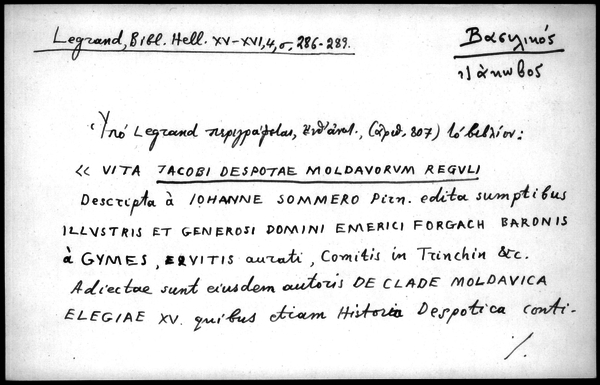 Legrand, Bibl. Hell. XV-XVI, 4, σ. 286-289.
Βασιλικός
Ἰάκωβος
Ὑπό Legrand περιγράφεται, ἔνθ' ἀνωτ., (ἀριθ. 807) τό βιβλίον:
« VITA JACOBI DESPOTAE MOLDAVORVM REGVLI
Descripta à IOHANNE SOMMERO Pirn. edita sumptibus
ILLVSTRIS ET GENEROSI DOMINI EMERICI FORGACH BARONIS
à GYMES, EQVITIS aurati, Comitis in Trinchin &c.
Adiectae sunt eiusdem autoris DE CLADE MOLDAVICA
ELEGIAE XV. quibus etiam Historia Despotica conti-
./.